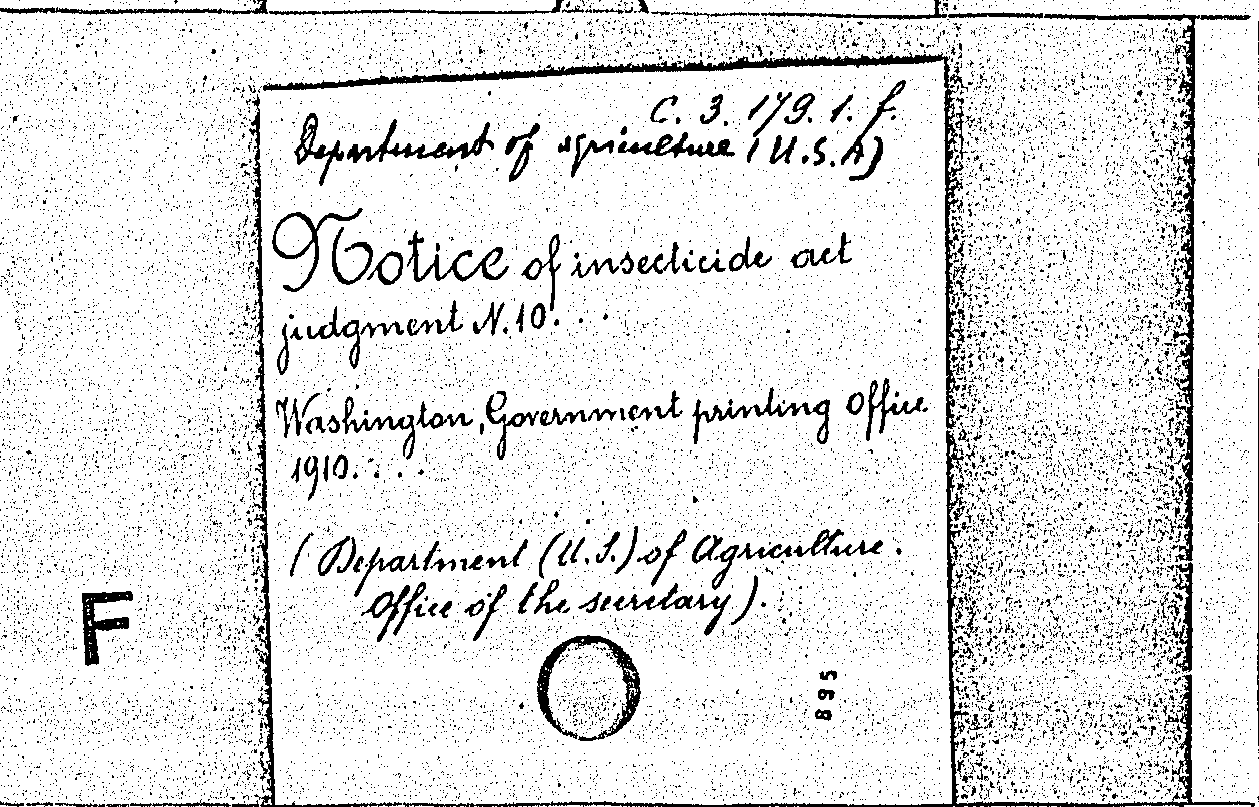 C. 3. 179. 1. f.
Department of agriculture (U.S.A)
Notice of insecticide act
judgment N.10. . .
Washington, Government printing Office
1910. . . .
(Department (U.S.) of Agriculture.
Office of the secretary).
F
895